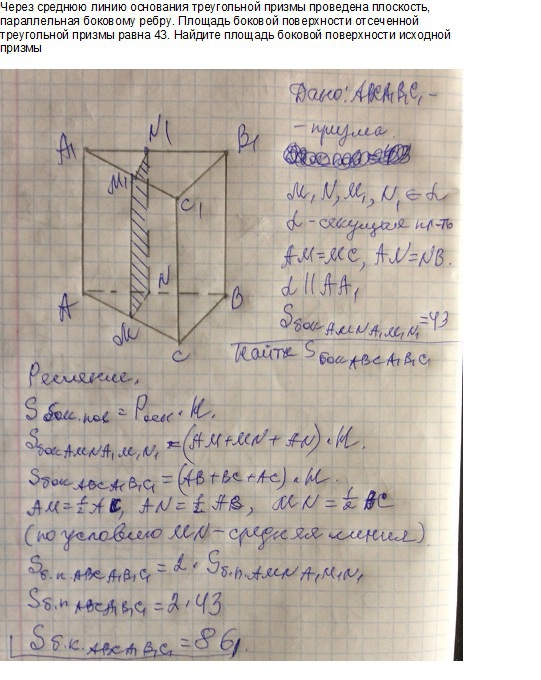 Через среднюю линию основания треугольной призмы проведена плоскость,
параллельная боковому ребру. Площадь боковой поверхности отсеченной
треугольной призмы равна 43. Найдите площадь боковой поверхности исходной
призмы
Дано: ABCA₁B₁C₁ -
- призма.
M, N, M₁, N₁ ∈ α
α - секущая пл-ть
AM=MC, AN=NB.
α || AA₁
Sбок AMNA₁M₁N₁ =43
Найти Sбок ABCA₁B₁C₁
A₁ N₁ B₁
M₁
C₁
A N B
M
C
Решение.
Sбок.пов = Pосн · H.
Sбок AMNA₁M₁N₁ = (AM+MN+AN) · H.
Sбок ABCA₁B₁C₁ = (AB+BC+AC) · H.
AM = ½ AC, AN = ½ AB, MN = ½ BC
(по условию MN - средняя линия)
Sб.п. ABCA₁B₁C₁ = 2 · Sб.п. AMNA₁M₁N₁
Sб.п ABCA₁B₁C₁ = 2 · 43
Sб.к. ABCA₁B₁C₁ = 86,